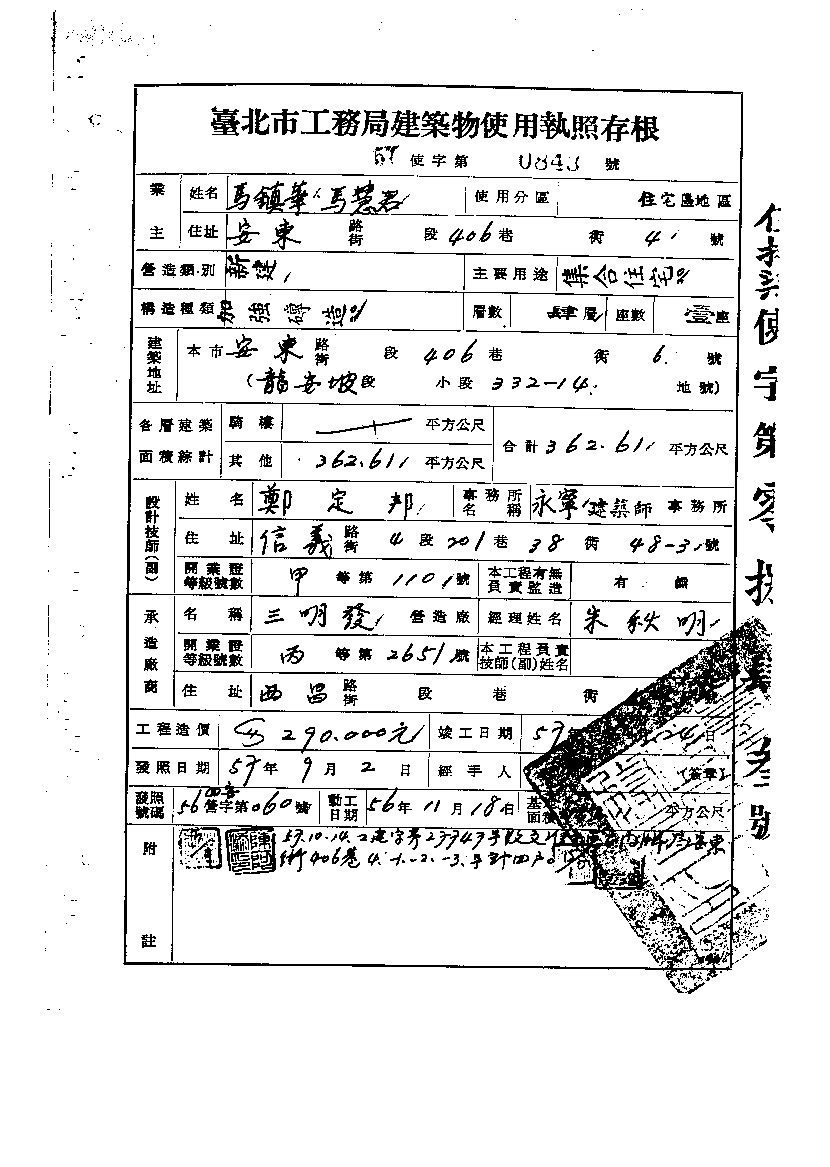 臺北市工務局建築物使用執照存根
57 使字第 0843 號
業主 姓名 馬鎮華、馬慧君 使用分區 住宅區地區
住址 安東 路街 段 406 巷 衖 4 號
營造類別 新建 主要用途 集合住宅
構造種類 加強磚造 層數 肆層 座數 壹座
建築地址 本市 安東 路街 段 406 巷 衖 6 號
(龍安坡段 小段 332-14 地號)
各層建築面積綜計 騎樓 平方公尺 合計 362.61 平方公尺
其他 362.61 平方公尺
設計技師(副) 姓名 鄭定邦 事務所名稱 永寧建築師事務所
住址 信義 路街 4 段 201 巷 38 衖 48-3 號
開業證等級號數 甲 等第 1101 號 本工程有無負責監造 有
承造廠商 名稱 三明發 營造廠 經理姓名 朱秋明
開業證等級號數 丙 等第 2651 號 本工程負責技師(副)姓名
住址 西昌 路街 段 巷 衖 號
工程造價 290.000元 竣工日期 57年 24日
發照日期 57年9月2日 經手人 (簽章)
發照號碼 56 營字第 060 號 動工日期 56年11月18日 平方公尺
附註 57.10.14.
406巷4.-1.-2.-3.號計四戶
使字第零捌 叁號